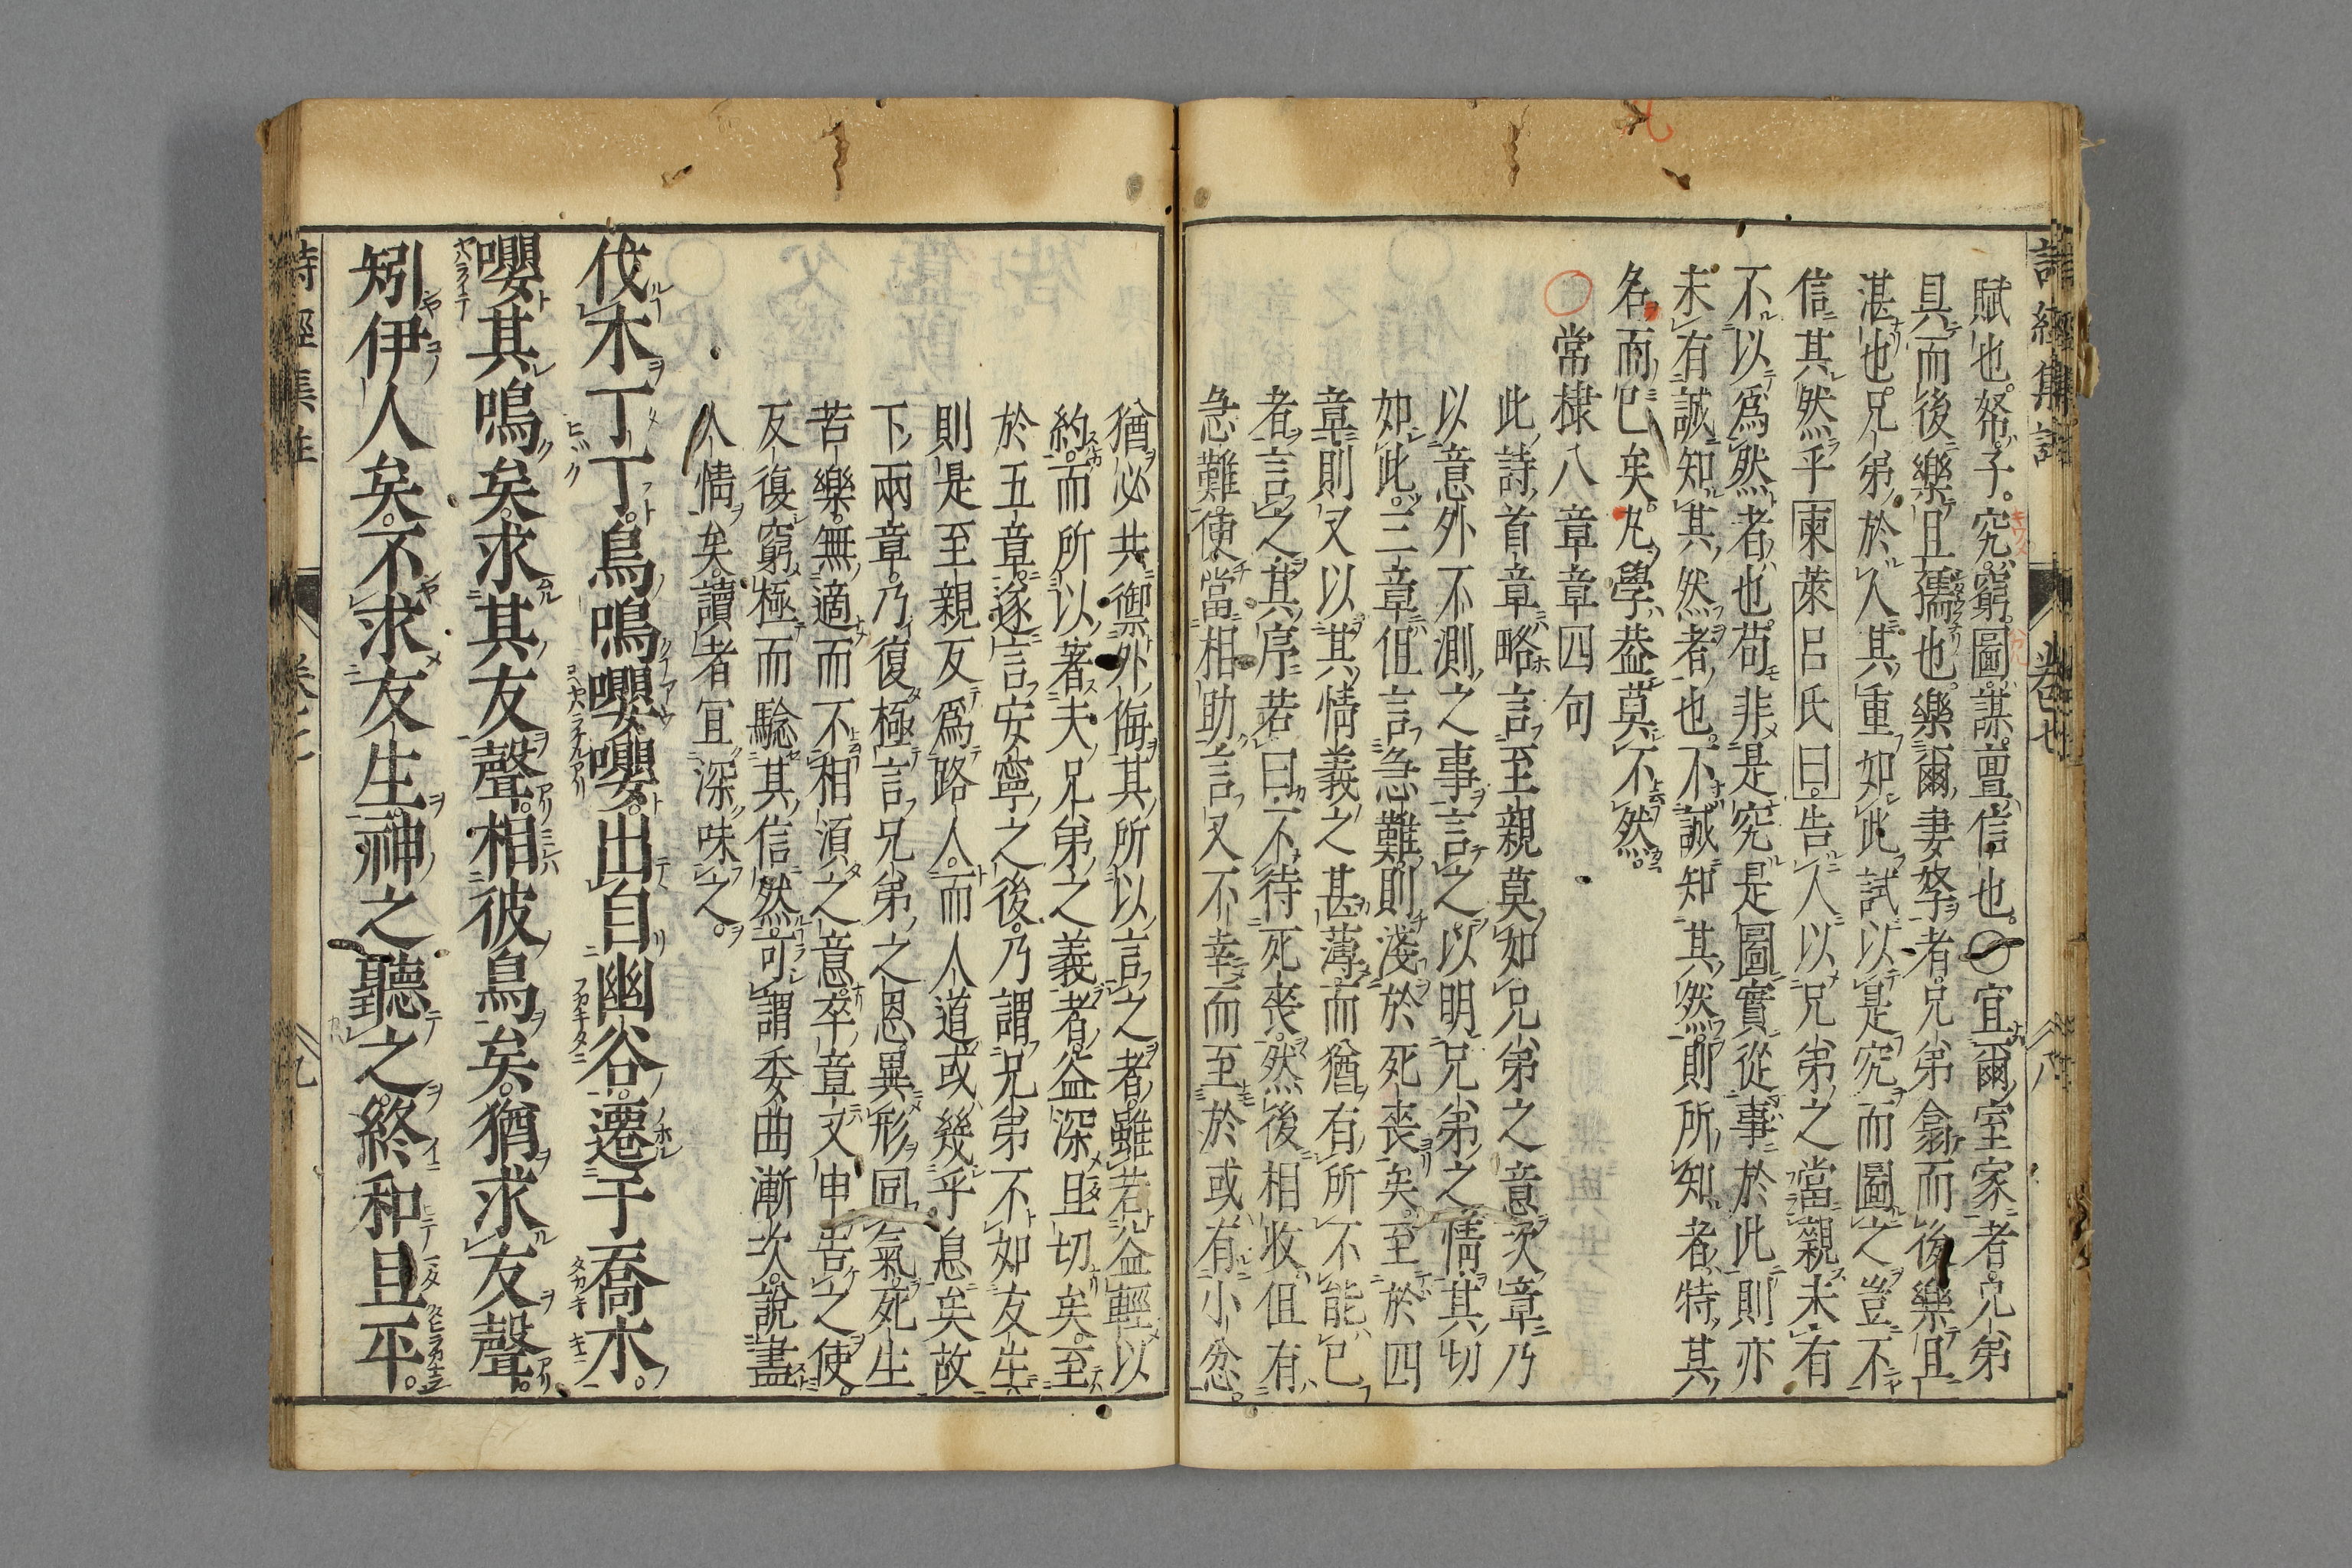 賦也。帑子。究窮。圖謀。亶信也。○宜爾室家者。兄弟
具而後樂且孺也。樂爾妻孥者。兄弟翕而後樂且
湛也。兄弟於人其重如此。試以是究而圖之。豈不
信其然乎東萊呂氏曰。告人以兄弟之當親未有
不以爲然者也。苟非是究是圖實從事於此則亦
未有誠知其然者也。不誠知其然。則所知者特其
名而已矣。凡學蓋莫不然。
常棣八章章四句
此詩首章略言至親莫如兄弟之意次章乃
以意外不測之事言之。以明兄弟之情。其切
如此。三章但言急難。則淺於死喪矣。至於四
章則又以其情義之甚薄而猶有所不能已
者言之其序若曰不待死喪。然後相收但有
急難便當相助。言又不幸而至於或有小忿。
猶必共禦外侮其所以言之者。雖若益輕以
約。而所以著夫兄弟之義者益深且切矣。至
於五章。遂言安寧之後。乃謂兄弟不如友生
則是至親反爲路人。而人道或幾乎息矣故
下兩章。乃復極言兄弟之恩。異形同氣。死生
苦樂。無適而不相須之意。卒章又申告之使
反復窮極而驗其信然。可謂委曲漸次。說盡
人情矣。讀者宜深味之。
伐木丁丁。鳥鳴嚶嚶。出自幽谷。遷于喬木。
嚶其鳴矣。求其友聲。相彼鳥矣。猶求友聲。
矧伊人矣。不求友生。神之聽之。終和且平。
詩經集註
卷七
九